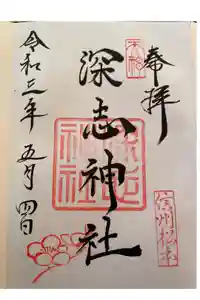 奉拝
深志神社
令和三年 五月 四日
信州松本